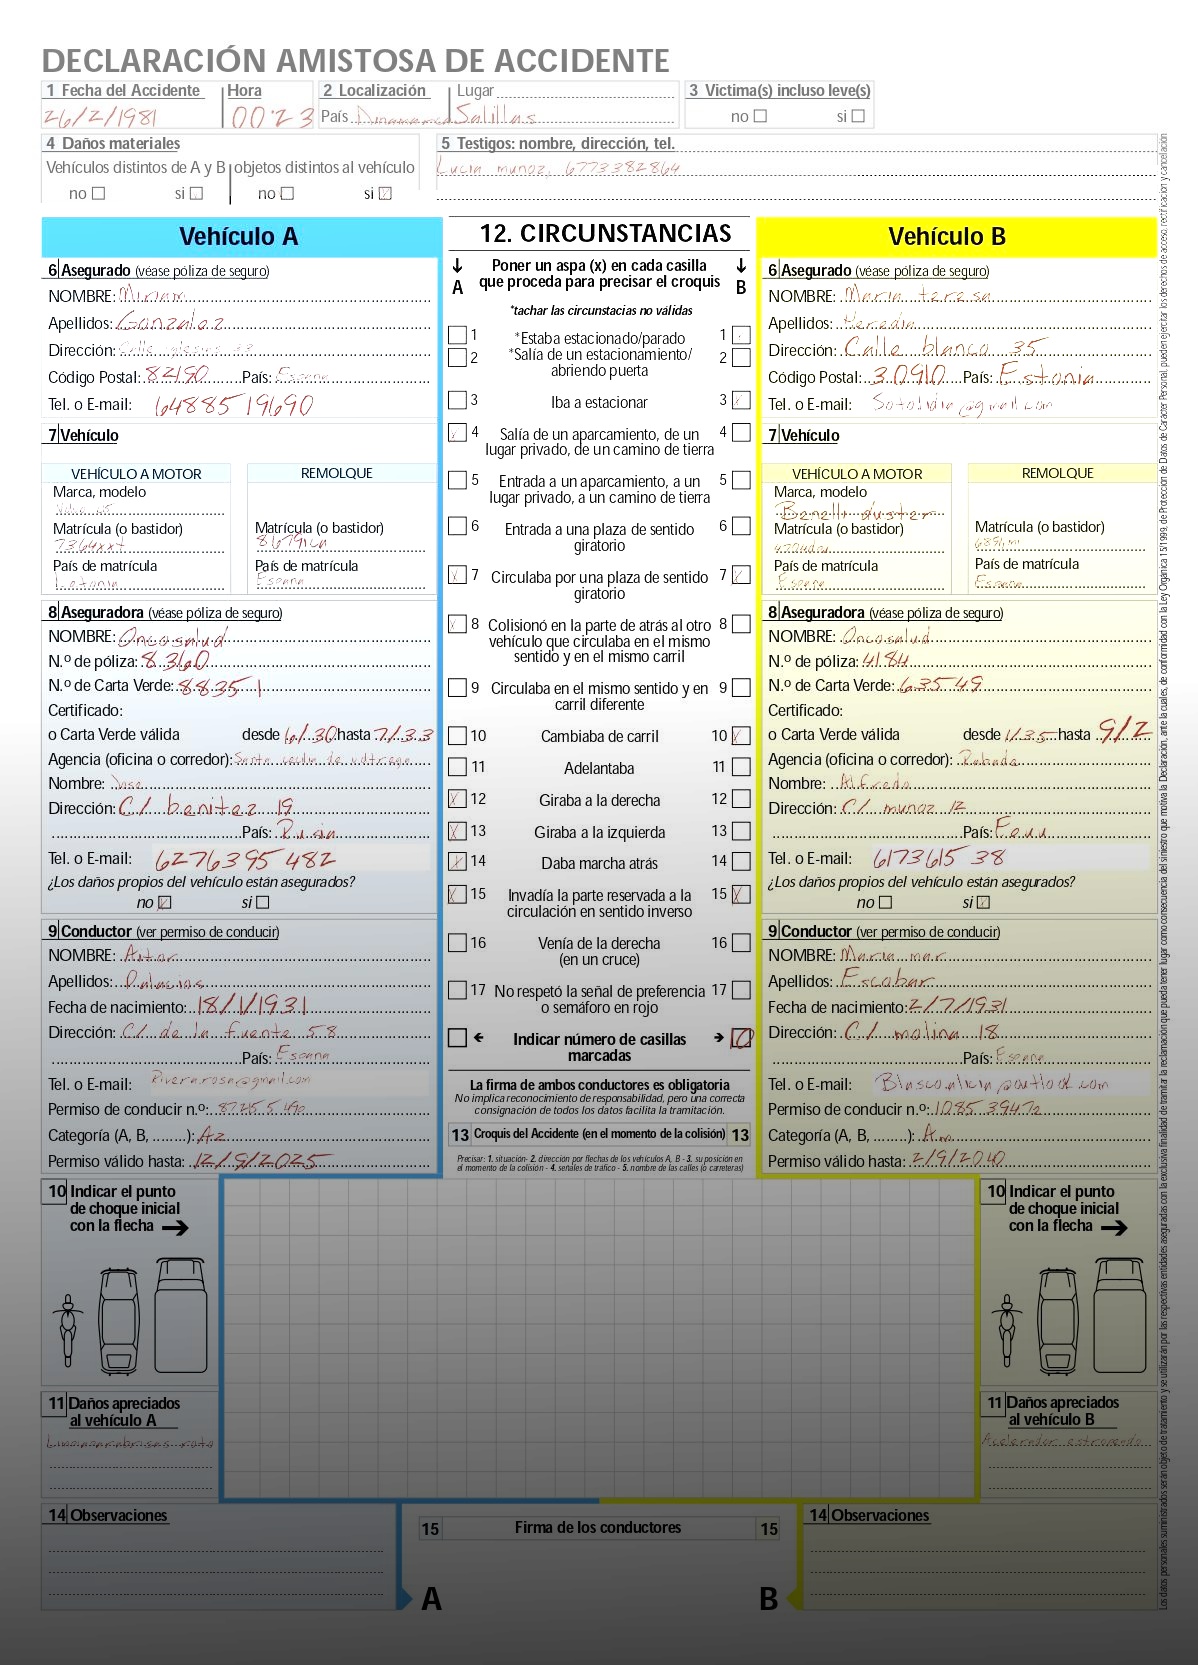 DECLARACIÓN AMISTOSA DE ACCIDENTE
1 Fecha del Accidente Hora 2 Localización Lugar 3 Victima(s) incluso leve(s)
26/2/1981 00:23 País Dinamarca Salillas no si
4 Daños materiales 5 Testigos: nombre, dirección, tel.
Vehículos distintos de A y B objetos distintos al vehículo Lucia munoz, 6773382864
no si no si
Vehículo A
6 Asegurado (véase póliza de seguro)
NOMBRE: Miriam
Apellidos: Gonzalez
Dirección: Calle iglesias 33
Código Postal: 82190 País: Espana
Tel. o E-mail: 6488519690
7 Vehículo
VEHÍCULO A MOTOR REMOLQUE
Marca, modelo
Matrícula (o bastidor) Matrícula (o bastidor)
7364xxt
País de matrícula País de matrícula
Letonia Espana
8 Aseguradora (véase póliza de seguro)
NOMBRE: Oncosalud
N.º de póliza: 8360
N.º de Carta Verde: 88351
Certificado:
o Carta Verde válida desde 6/30 hasta 7/33
Agencia (oficina o corredor): Santa cecilia de
Nombre: Jose
Dirección: C/ benitez 19
País: Rusia
Tel. o E-mail: 6276395482
¿Los daños propios del vehículo están asegurados?
no si
9 Conductor (ver permiso de conducir)
NOMBRE: Aitor
Apellidos: Palacios
Fecha de nacimiento: 18/1/1931
Dirección: C/ de la fuente 58
País: Espana
Tel. o E-mail: Riverarosa@gmail.com
Permiso de conducir n.º:
Categoría (A, B, ........): A2
Permiso válido hasta: 12/9/2025
10 Indicar el punto
de choque inicial
con la flecha
11 Daños apreciados
al vehículo A
Limpiaparabrisas roto
14 Observaciones
12. CIRCUNSTANCIAS
Poner un aspa (x) en cada casilla
A que proceda para precisar el croquis B
*tachar las circunstacias no validas
1 *Estaba estacionado/parado 1
2 *Salía de un estacionamiento/ 2
abriendo puerta
3 Iba a estacionar 3
4 Salía de un aparcamiento, de un 4
lugar privado, de un camino de tierra
5 Entrada a un aparcamiento, a un 5
lugar privado, a un camino de tierra
6 Entrada a una plaza de sentido 6
giratorio
7 Circulaba por una plaza de sentido 7
giratorio
8 Colisionó en la parte de atrás al otro 8
vehículo que circulaba en el mismo
sentido y en el mismo carril
9 Circulaba en el mismo sentido y en 9
carril diferente
10 Cambiaba de carril 10
11 Adelantaba 11
12 Giraba a la derecha 12
13 Giraba a la izquierda 13
14 Daba marcha atrás 14
15 Invadía la parte reservada a la 15
circulación en sentido inverso
16 Venía de la derecha 16
(en un cruce)
17 No respetó la señal de preferencia 17
o semáforo en rojo
Indicar número de casillas 10
marcadas
La firma de ambos conductores es obligatoria
No implica reconocimiento de responsabilidad, pero una correcta
consignación de todos los datos facilita la tramitación.
13 Croquis del Accidente (en el momento de la colisión) 13
Precisar: 1. situación- 2. dirección por flechas de los vehículos A, B - 3. su posición en
el momento de la colisión - 4. señales de tráfico - 5. nombre de las calles (o carreteras)
15 Firma de los conductores 15
A B
Vehículo B
6 Asegurado (véase póliza de seguro)
NOMBRE: Maria teresa
Apellidos: Heredia
Dirección: Calle blanco 35
Código Postal: 30910 País: Estonia
Tel. o E-mail: Sotolidia@gmail.com
7 Vehículo
VEHÍCULO A MOTOR REMOLQUE
Marca, modelo
Benelli duster
Matrícula (o bastidor) Matrícula (o bastidor)
País de matrícula País de matrícula
Espana Espana
8 Aseguradora (véase póliza de seguro)
NOMBRE: Oncosalud
N.º de póliza: 4184
N.º de Carta Verde: 63549
Certificado:
o Carta Verde válida desde 1/35 hasta 9/2
Agencia (oficina o corredor): Rabade
Nombre: Alfredo
Dirección: C/ munoz 12
País: Peru
Tel. o E-mail: 617361538
¿Los daños propios del vehículo están asegurados?
no si
9 Conductor (ver permiso de conducir)
NOMBRE: Maria mar
Apellidos: Escobar
Fecha de nacimiento: 2/7/1931
Dirección: C/ molina 18
País: Espana
Tel. o E-mail: Blascoalicia@outlook.com
Permiso de conducir n.º: 108539472
Categoría (A, B, ........): Am
Permiso válido hasta: 2/9/2040
10 Indicar el punto
de choque inicial
con la flecha
11 Daños apreciados
al vehículo B
Acelerador estropeado
14 Observaciones
Los datos personales suministrados serán objeto de tratamiento y se utilizarán por las respectivas entidades aseguradas con la exclusiva finalidad de tramitar la reclamación que pueda tener lugar como consecuencia del siniestro que motiva la Declaración, ante la cuales, de conformidad con la Ley Orgánica 15/1999, de Protección de Datos de Carácter Personal, pueden ejercitar los derechos de acceso, rectificación y cancelación